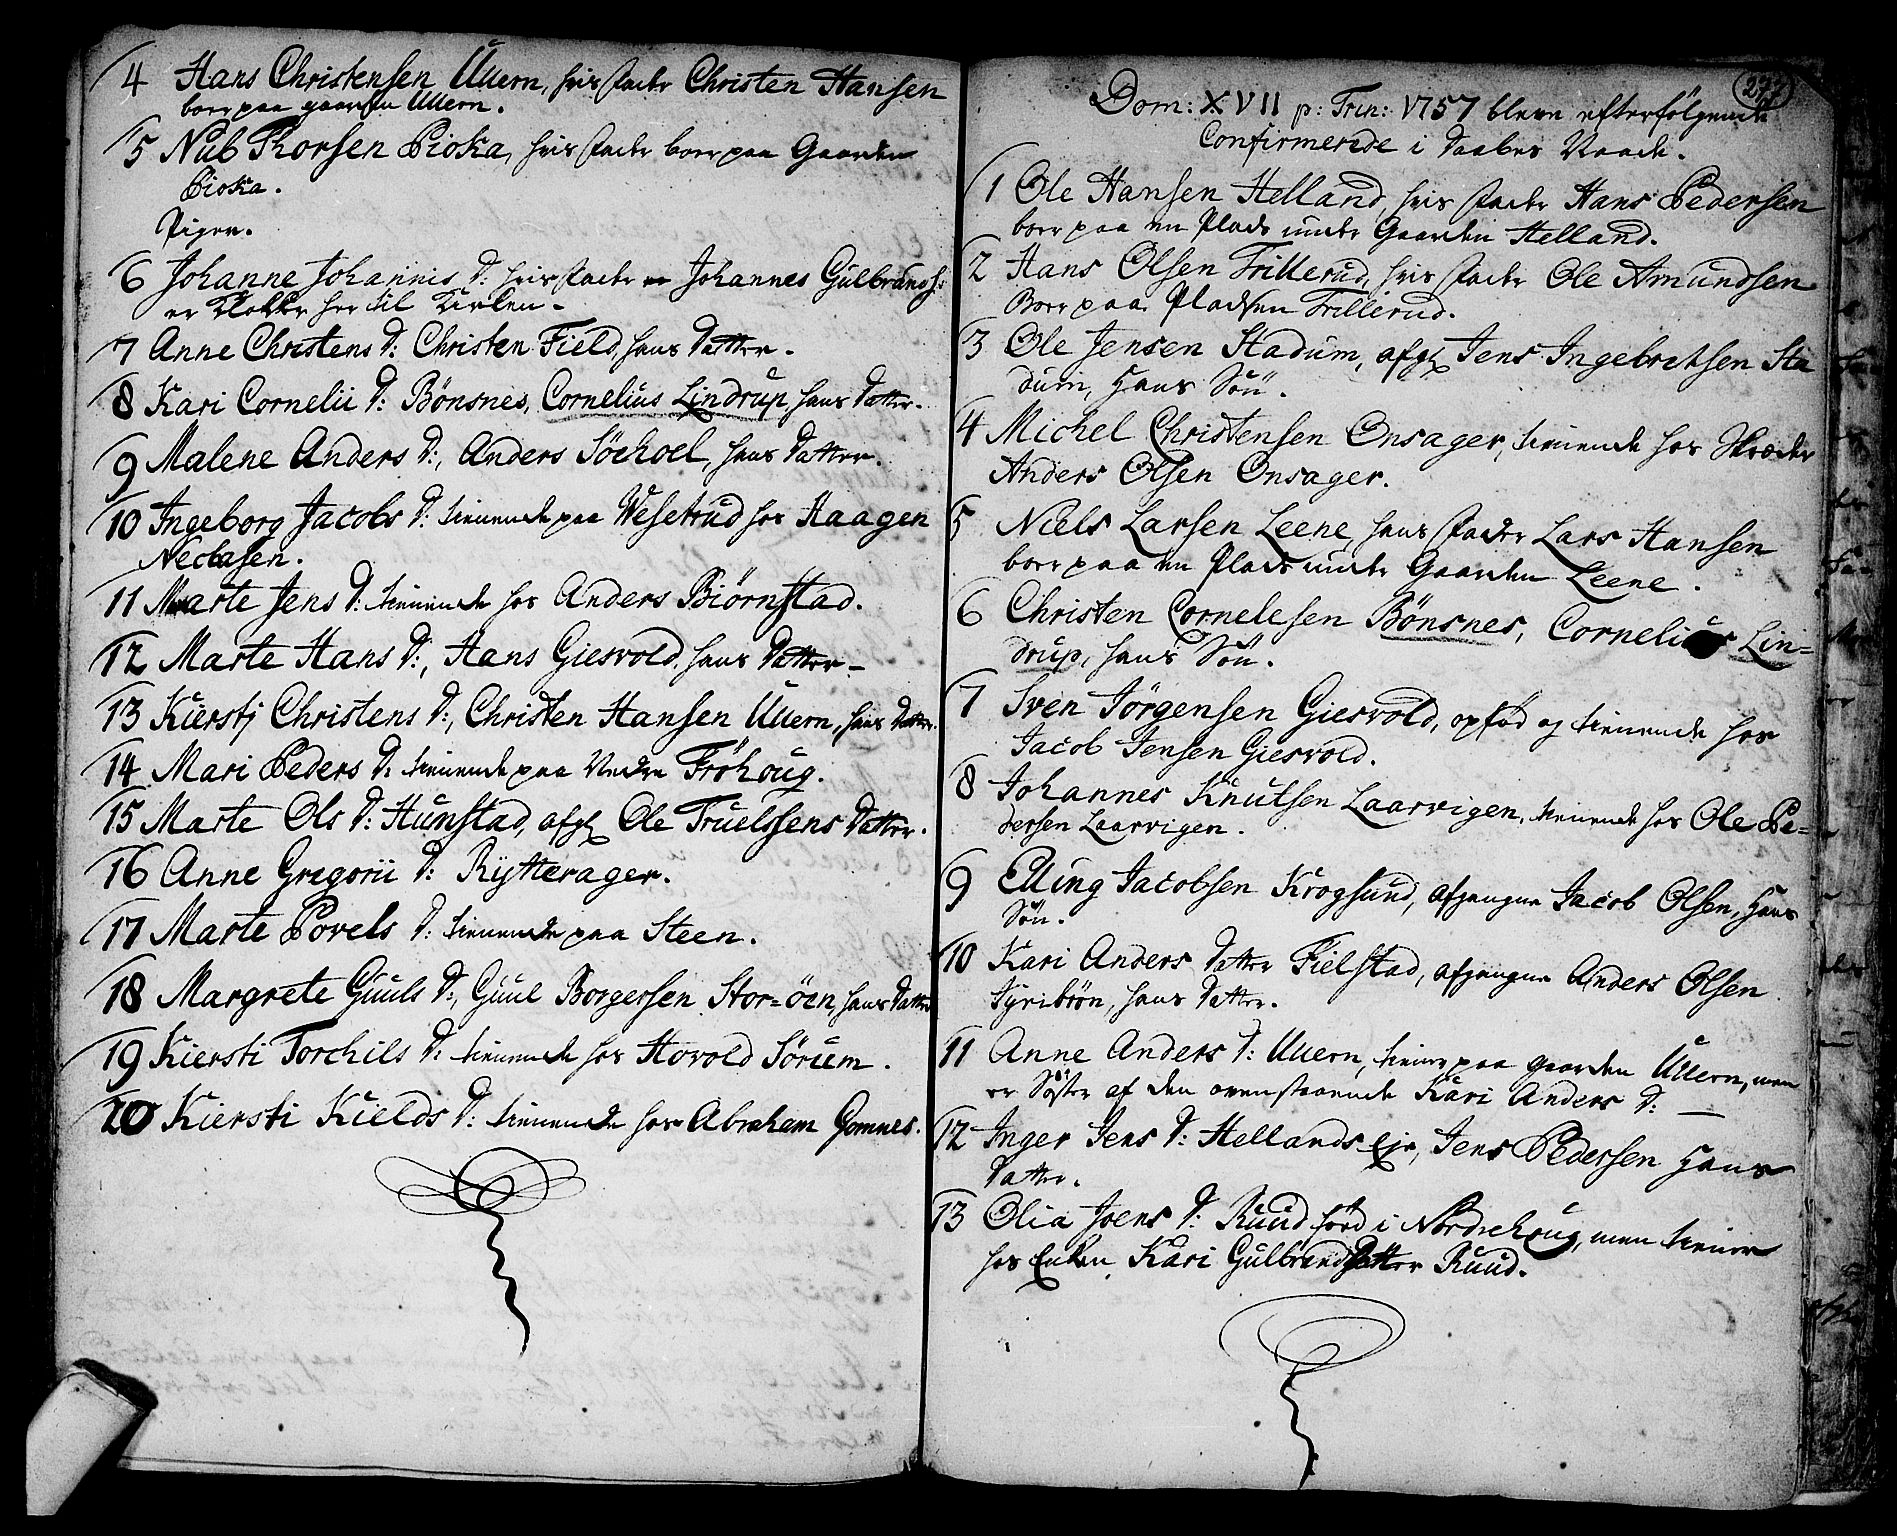 4 Hans Christensen Ullern, hvis fader Christen Hansen
boer paa gaarden Ullern.
5 Nub Roesen Pioka, hvis fader boer paa Gaarden
Pioka.
Piger.
6 Johanne Johannis D: hvis fader Johannes Gulbrands:
er Klokker her til Kirken.
7 Anne Christens D: Christen Field, hans Datter.
8 Kari Cornelii D: Bönsnes, Cornelius Lindrup, hans Datter.
9 Malene Anders D:, Anders Söehoel, hans Datter.
10 Ingeborg Jacobs D: tienende paa Wesetrud hos Haagen
11 Marte Jens D: tienende hos Anders Biörnstad.
12 Marte Hans D:, Hans Giesvold, hans Datter -
13 Kierstj Christens D:, Christen Hansen Ullern, hans Datter.
14 Mari Peders D: tienende paa Nedre Fröhoug.
15 Marte Ols D: Hunstad, afg: Ole Truelssens Datter.
16 Anne Gregorii D: Rytterager.
17 Marte Povels D: tienende paa Steen.
18 Margrete Guuls D:, Guul Borgersen Stor=öen, hans Datter
19 Kiersti Torchils D: tienende hos Hovold Sörum.
20 Kiersti Kields D: tienende hos Abraham Gomnes.
277
Dom: XVII p: Trin: 1757 bleve efterfölgende
Confirmerede i Daabes Naade.
1 Ole Hansen Helland, hvis fader Hans Pedersen
boer paa en Plads under Gaarden Helland.
2 Hans Olsen Trillerud, hvis fader Ole Amundsen
Boer paa Pladsen Trillerud.
3 Ole Jensen Stadum, afg: Jens Ingebretsen Sta
dum, Hans Sön.
4 Michel Christensen Onsager, tienende hos Skræder
Anders Olsen Onsager.
5 Niels Larsen Leene, hans fader Lars Hansen
boer paa en Plads under Gaarden Leene.
6 Christen Cornelesen Bönsnes, Cornelius Lin=
drup, hans Sön.
7 Sven Jörgensen Giesvold, opfød og tienende hos
Jacob Jensen Giesvold.
8 Johannes Knutsen Laarvigen, tienende hos Ole Pe=
dersen Laarvigen.
9 Elling Jacobsen Krogsund, afgangne Jacob Olsen, Hans
Sön.
10 Kari Anders Datter Fielstad, afgangne Anders Olsen
Tyribrön, hans Datter.
11 Anne Anders D: Ullern, tiener paa gaarden Ullern, men
er Söster af den ovenstaaende Kari Anders D: -
12 Inger Jens D: Hellands Eje, Jens Pedersen Hans
Datter.
13 Olia Joens D: Ruud föed i Nordrehoug, men tiener
hos Enken Kari Gulbrands Datter Ruud.